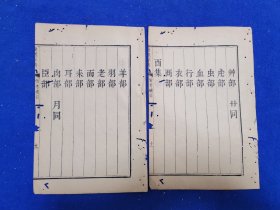 艸部 艹同
虍部
虫部
血部
行部
衣部
襾部
酉集
羊部
羽部
老部
而部
耒部
耳部
肉部 月同
臣部